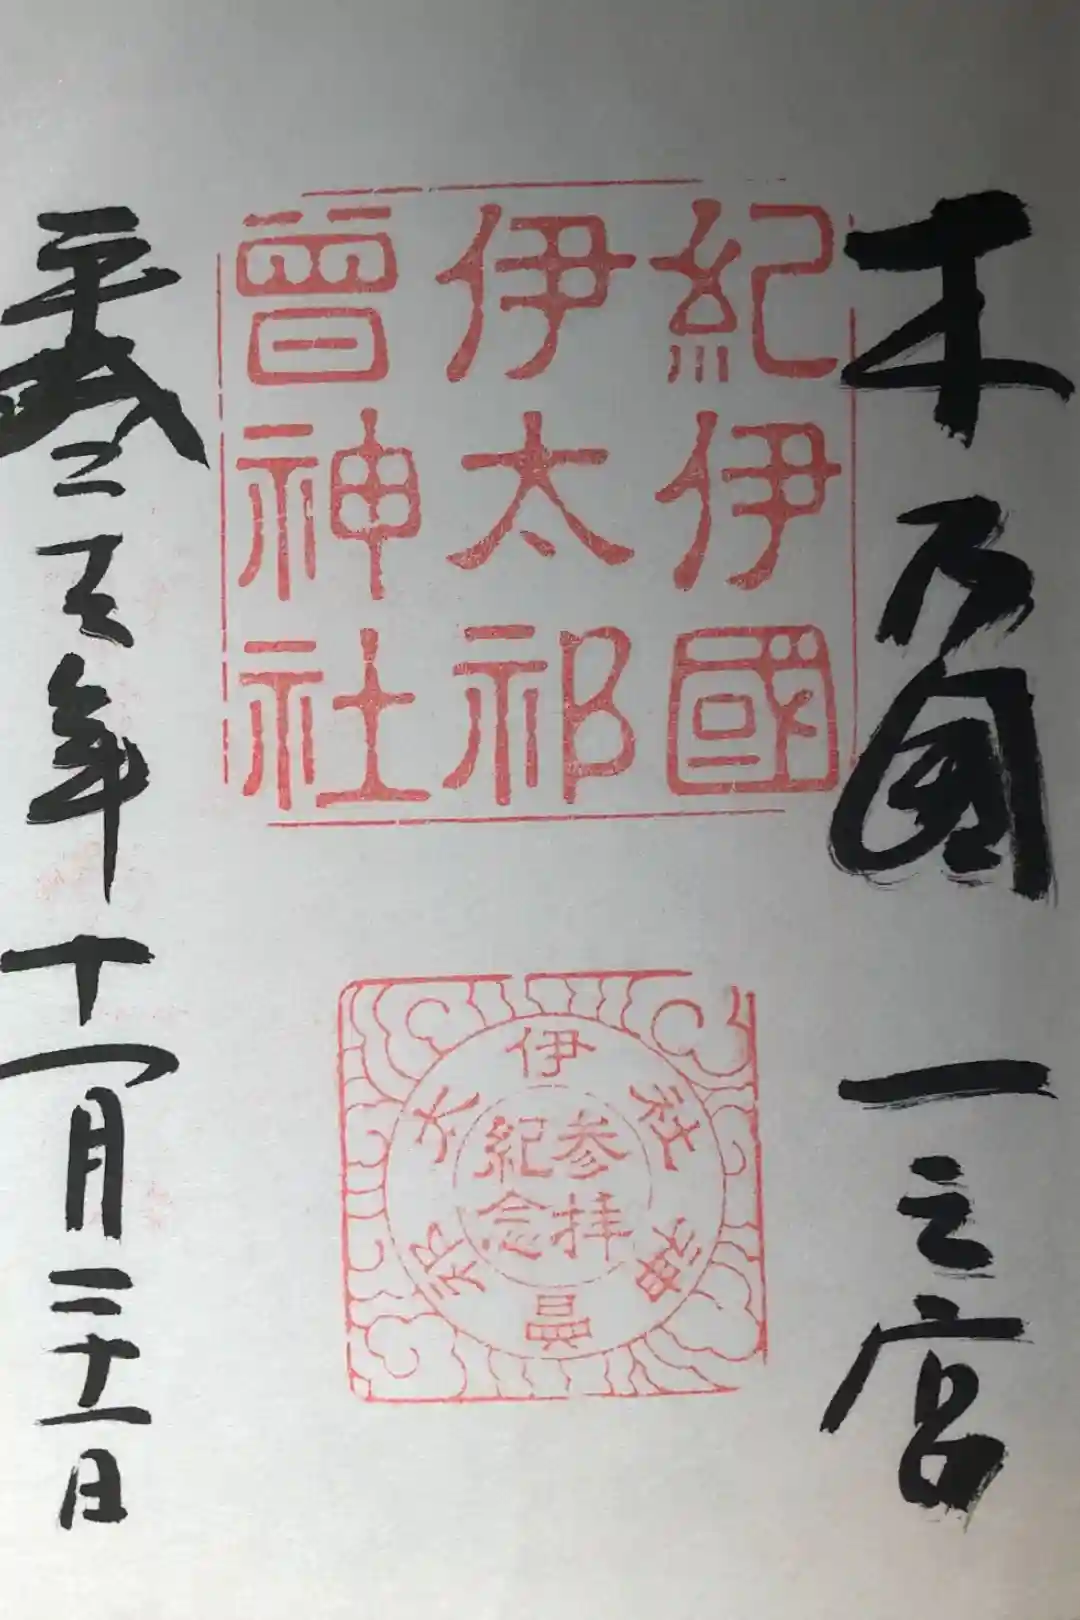 木乃國 一之宮
紀伊國
伊太祁
曾神社
伊太祁曾神社
参拝
紀念
平成二年十一月二十一日